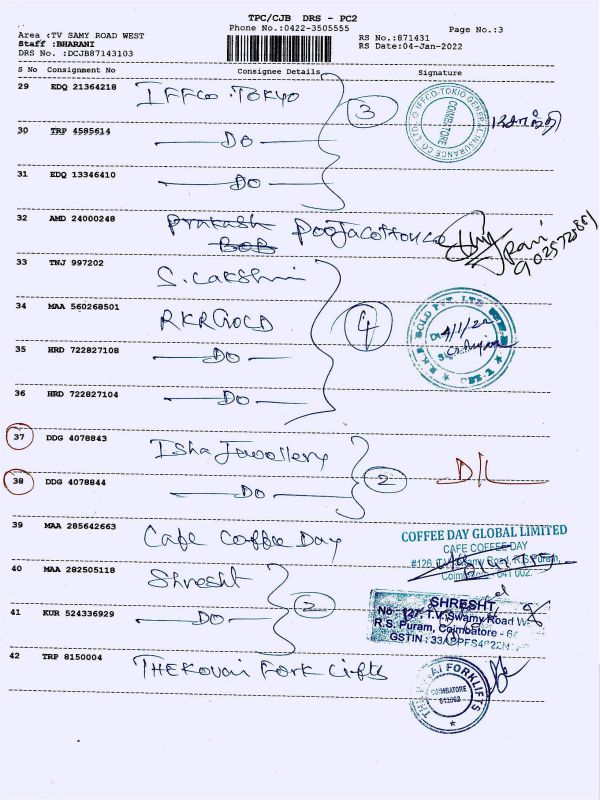 TPC/CJB DRS - PC2
Phone No.:0422-3505555
Page No.:3
Area :TV SAMY ROAD WEST
Staff :BHARANI
DRS No. :DCJB87143103
RS No.:871431
RS Date:04-Jan-2022
S No Consignment No Consignee Details Signature
29 EDQ 21364218 IFFCO.TOKYO
3
IFFCO-TOKIO GENERAL INSURANCE CO LTD.
COIMBATORE
30 TRP 4585614 DO
31 EDQ 13346410 DO
32 AMD 24000248 Prakash PoojaCottonCo
BOB
rani
33 TNJ 997202 S. Lakshmi
34 MAA 560268501 RKRGOLD
4
GOLD PVT. LTD.
4/1/22
35 HRD 722827108 DO
36 HRD 722827104 DO
37 DDG 4078843 Isha Jewellery
2
D/L
38 DDG 4078844 DO
39 MAA 285642663 Cafe Coffee Day
COFFEE DAY GLOBAL LIMITED
CAFE COFFEE DAY
#126, T.V. Samy Road, R.S.Puram,
Coimbatore - 641 002.
40 MAA 282505118 Shresht
2
SHRESHT
No : 127, T.V.Swamy Road
R.S. Puram, Coimbatore -
GSTIN :
41 KUR 524336929 DO
42 TRP 8150004 THEKOVAI FORK Lifts
THE KOVAI FORKLIFTS
COIMBATORE
641002